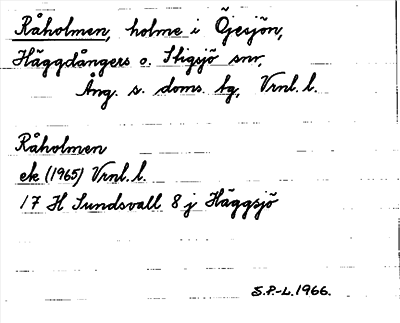 Råholmen, holme i Öjesjön,
Häggdångers o. Stigsjö snr,
Ång. s. doms. tg, Vrnl. l.
Råholmen
ek (1965) Vrnl. l.
17 H Sundsvall 8 j Häggsjö
S.P.-L. 1966.